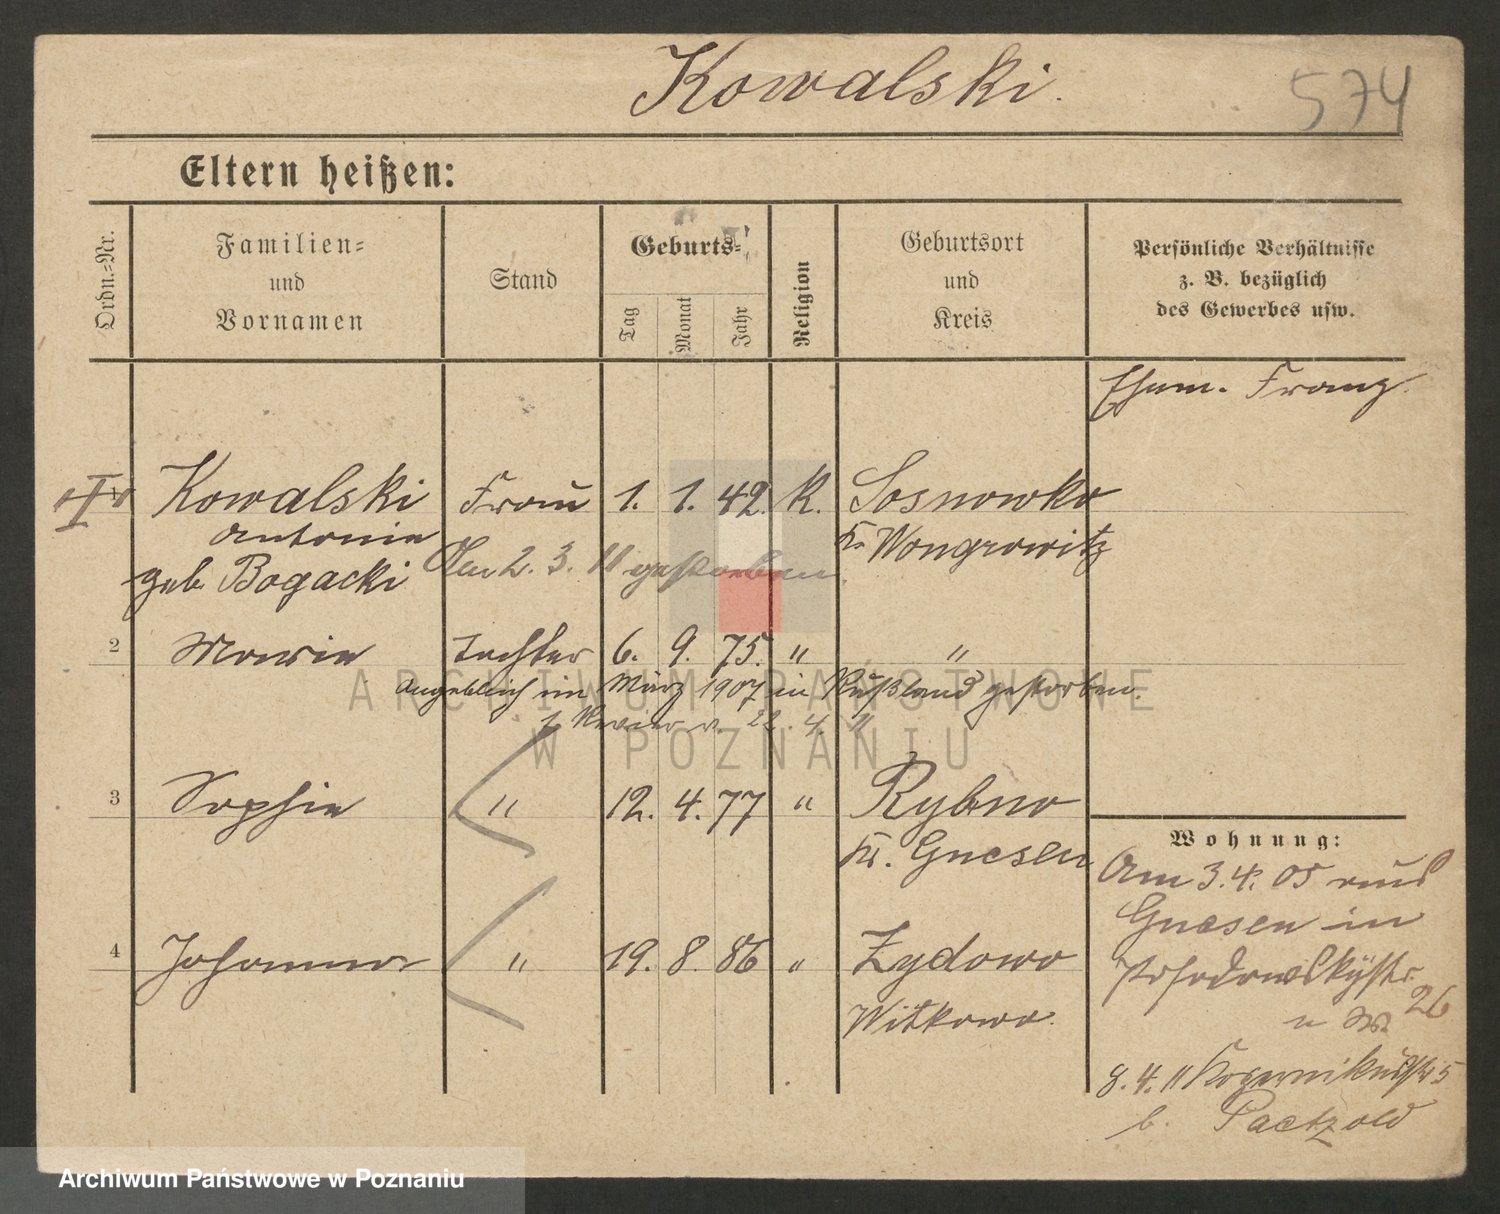 Kowalski.
574
Eltern heißen:
Ordn.-Nr.
Familien-
und
Vornamen
Stand
Geburts-
Tag
Monat
Jahr
Religion
Geburtsort
und
Kreis
Persönliche Verhältnisse
z. B. bezüglich
des Gewerbes usw.
Ehem. Franz.
Kowalski Frau 1. 1. 42. K. Sosnowko
Antonie Kr. Wongrowitz
geb. Bogacki Am 2. 3. 11 gestorben.
2 Marie Tochter 6. 9. 75. " "
Angeblich im März 1907 in Rußland gestorben.
22. 4. 11
3 Sophie " 12. 4. 77 " Rybno
Kr. Gnesen
4 Johanna " 19. 8. 86 " Zydowo
Witkowo.
Wohnung:
Am 3. 4. 05 aus
Gnesen in
Posadowskystr.
26
8. 4. 11 Kopernikusstr 5
b. Paetzold
ARCHIWUM PAŃSTWOWE
W POZNANIU
Archiwum Państwowe w Poznaniu